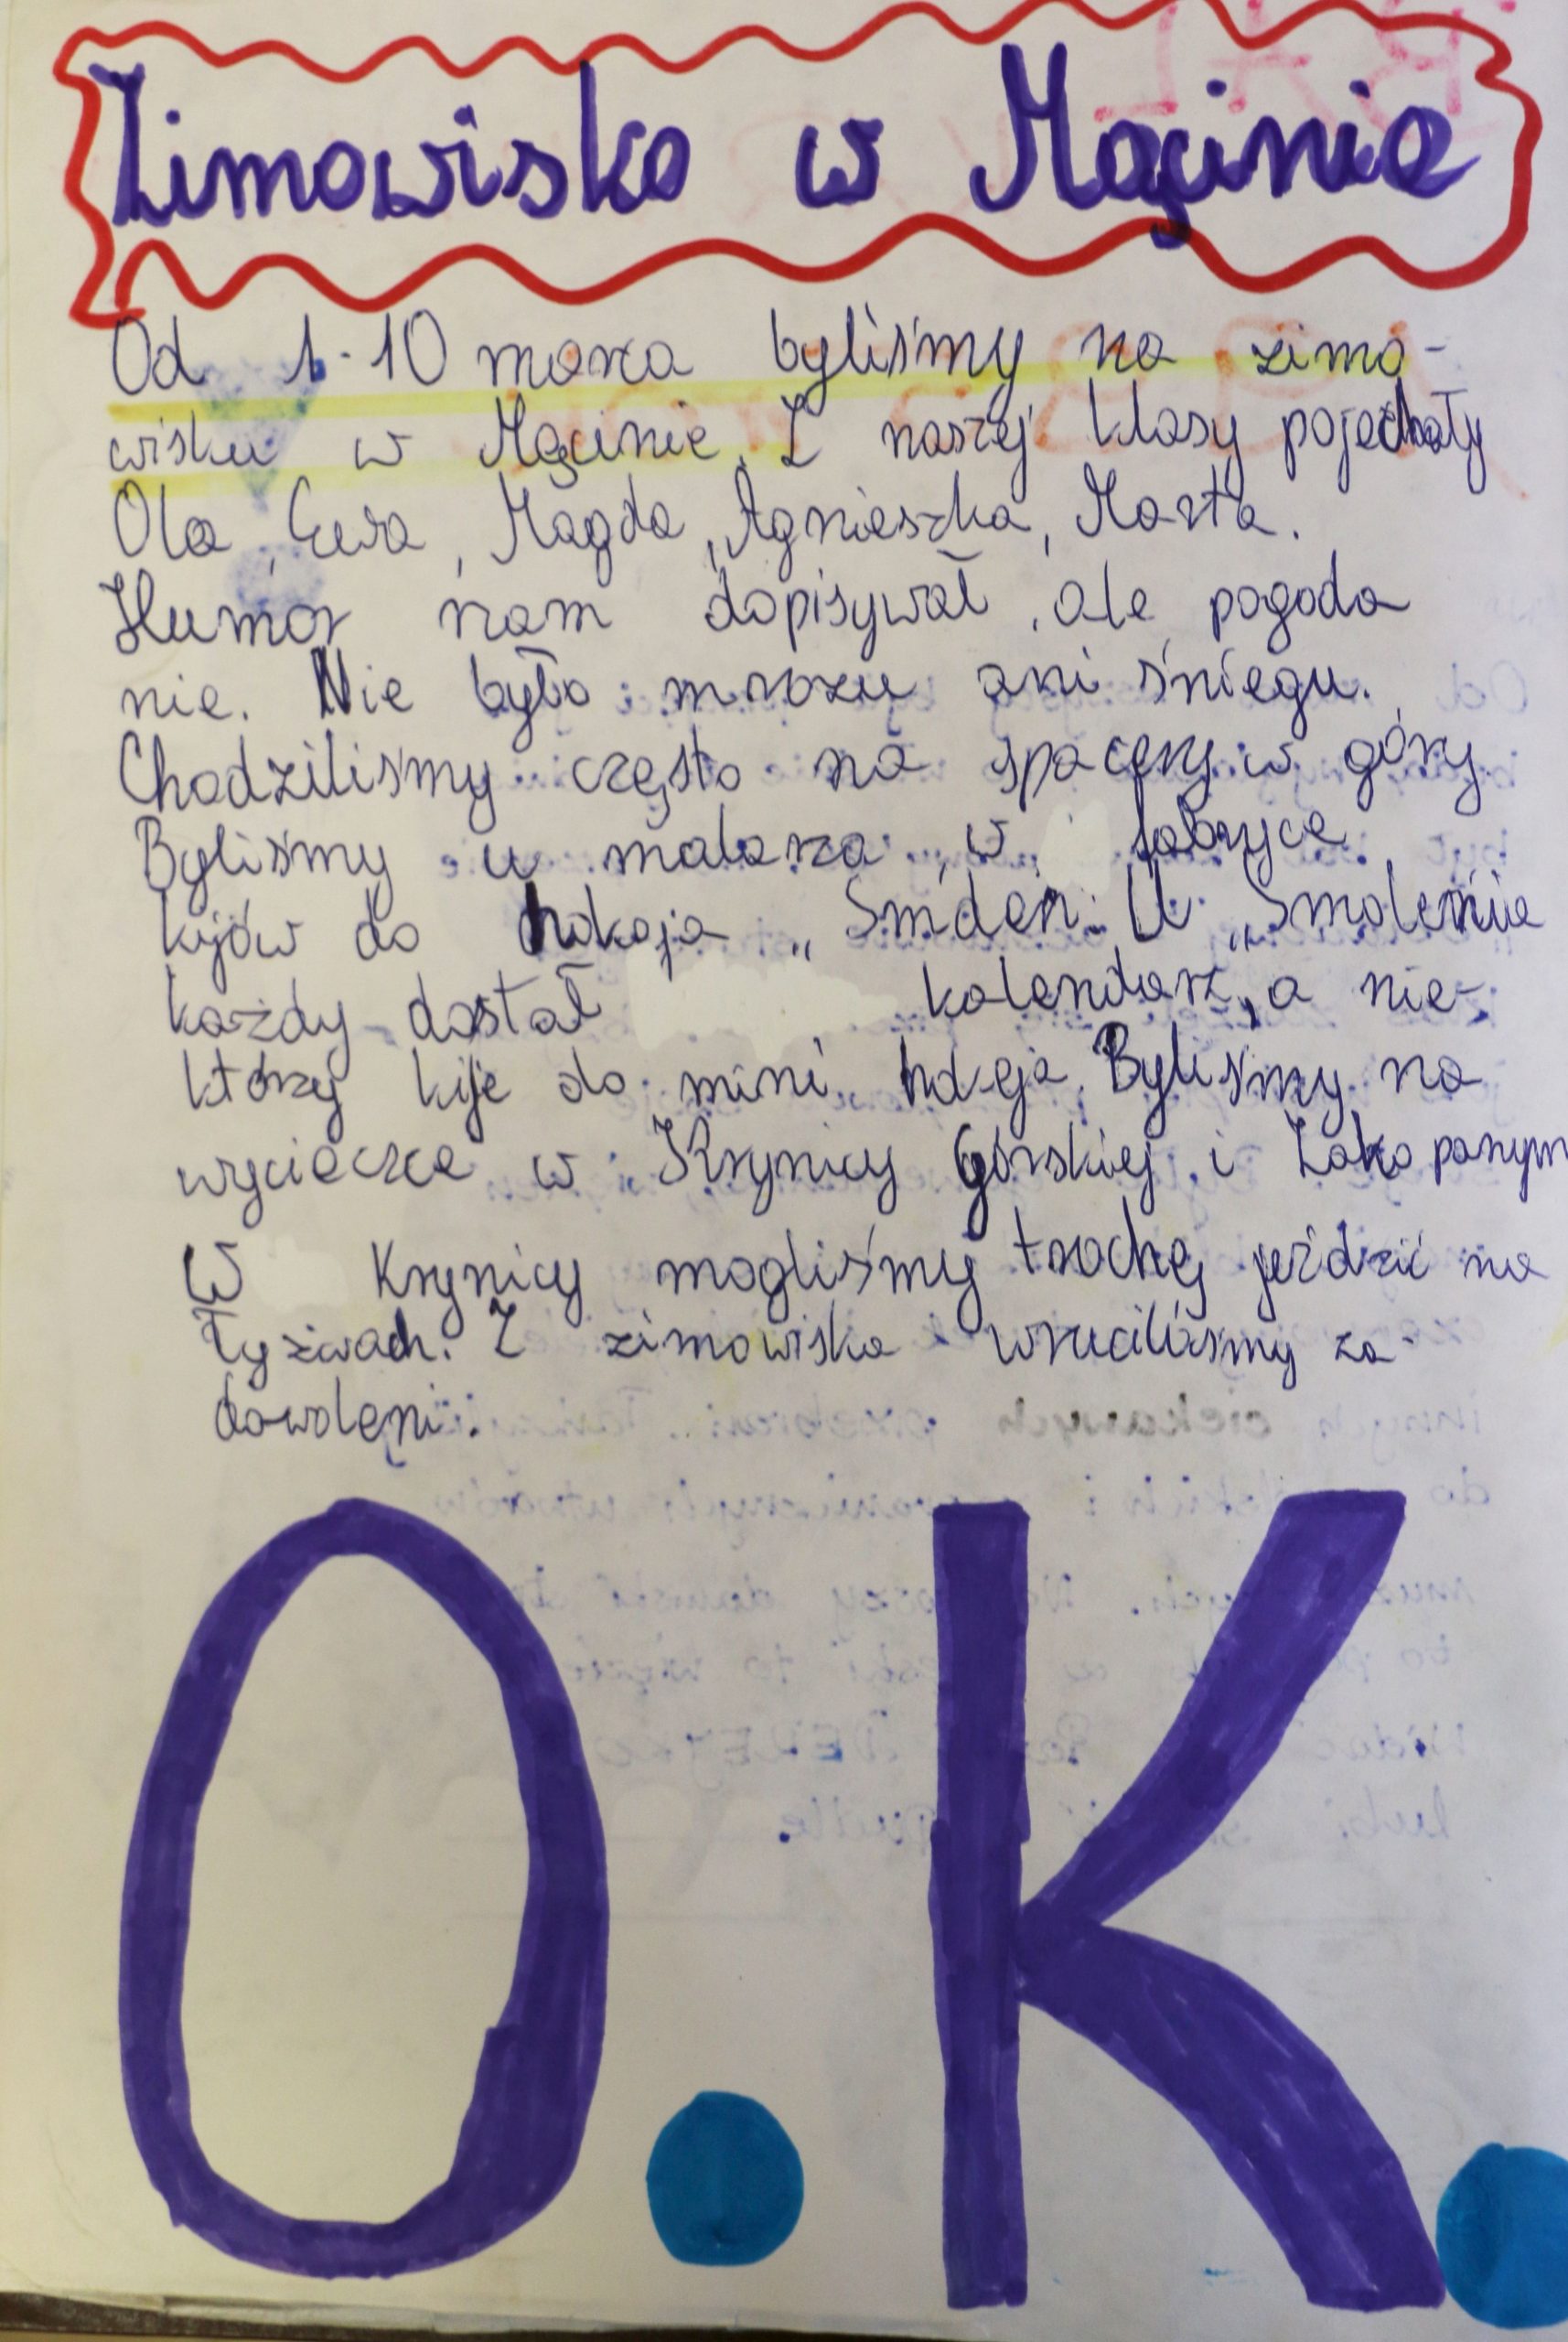 Zimowisko w Męcinie
Od 1-10 marca byliśmy na zimo-
wisku w Męcinie. Z naszej klasy pojechały
Ola, Ewa, Magda, Agnieszka, Marta.
Humor nam dopisywał, ale pogoda
nie. Nie było mrozu ani śniegu.
Chodziliśmy często na spacery w góry
Byliśmy u malarza, w fabryce
kijów do hokeja „Smolen. U „Smolenia
każdy dostał kalendarz, a nie-
którzy kije do mini hokeja. Byliśmy na
wycieczce w Krynicy Górskiej i Zakopanym
W Krynicy mogliśmy trochę jeździć na
łyżwach. Z zimowiska wruciliśmy za-
dowolęni.
O.K.